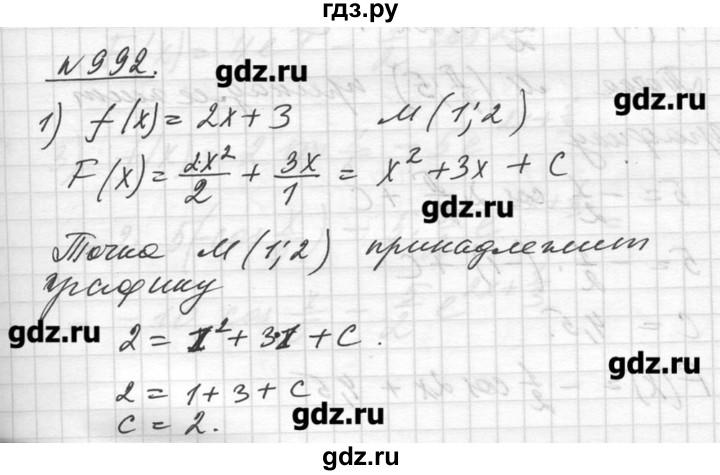 гдз.ру
№992.
gdz.ru
1) f(x) = 2x + 3 M(1; 2)
gdz.ru
F(x) = 2x²/2 + 3x/1 = x² + 3x + C
gdz.ru
Точка M(1; 2) принадлежит
графику
gdz.ru
2 = 1² + 3·1 + C.
gdz.ru
2 = 1 + 3 + C
gdz.ru
C = 2.
gdz.ru